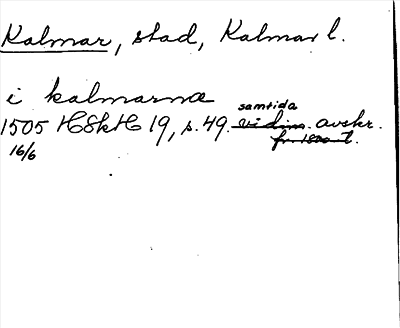 Kalmar, stad, Kalmar l.
i kalmarna
samtida
1505 HSkH 19, s. 49. vidim. avskr.
16/6 fr. 1800 t.